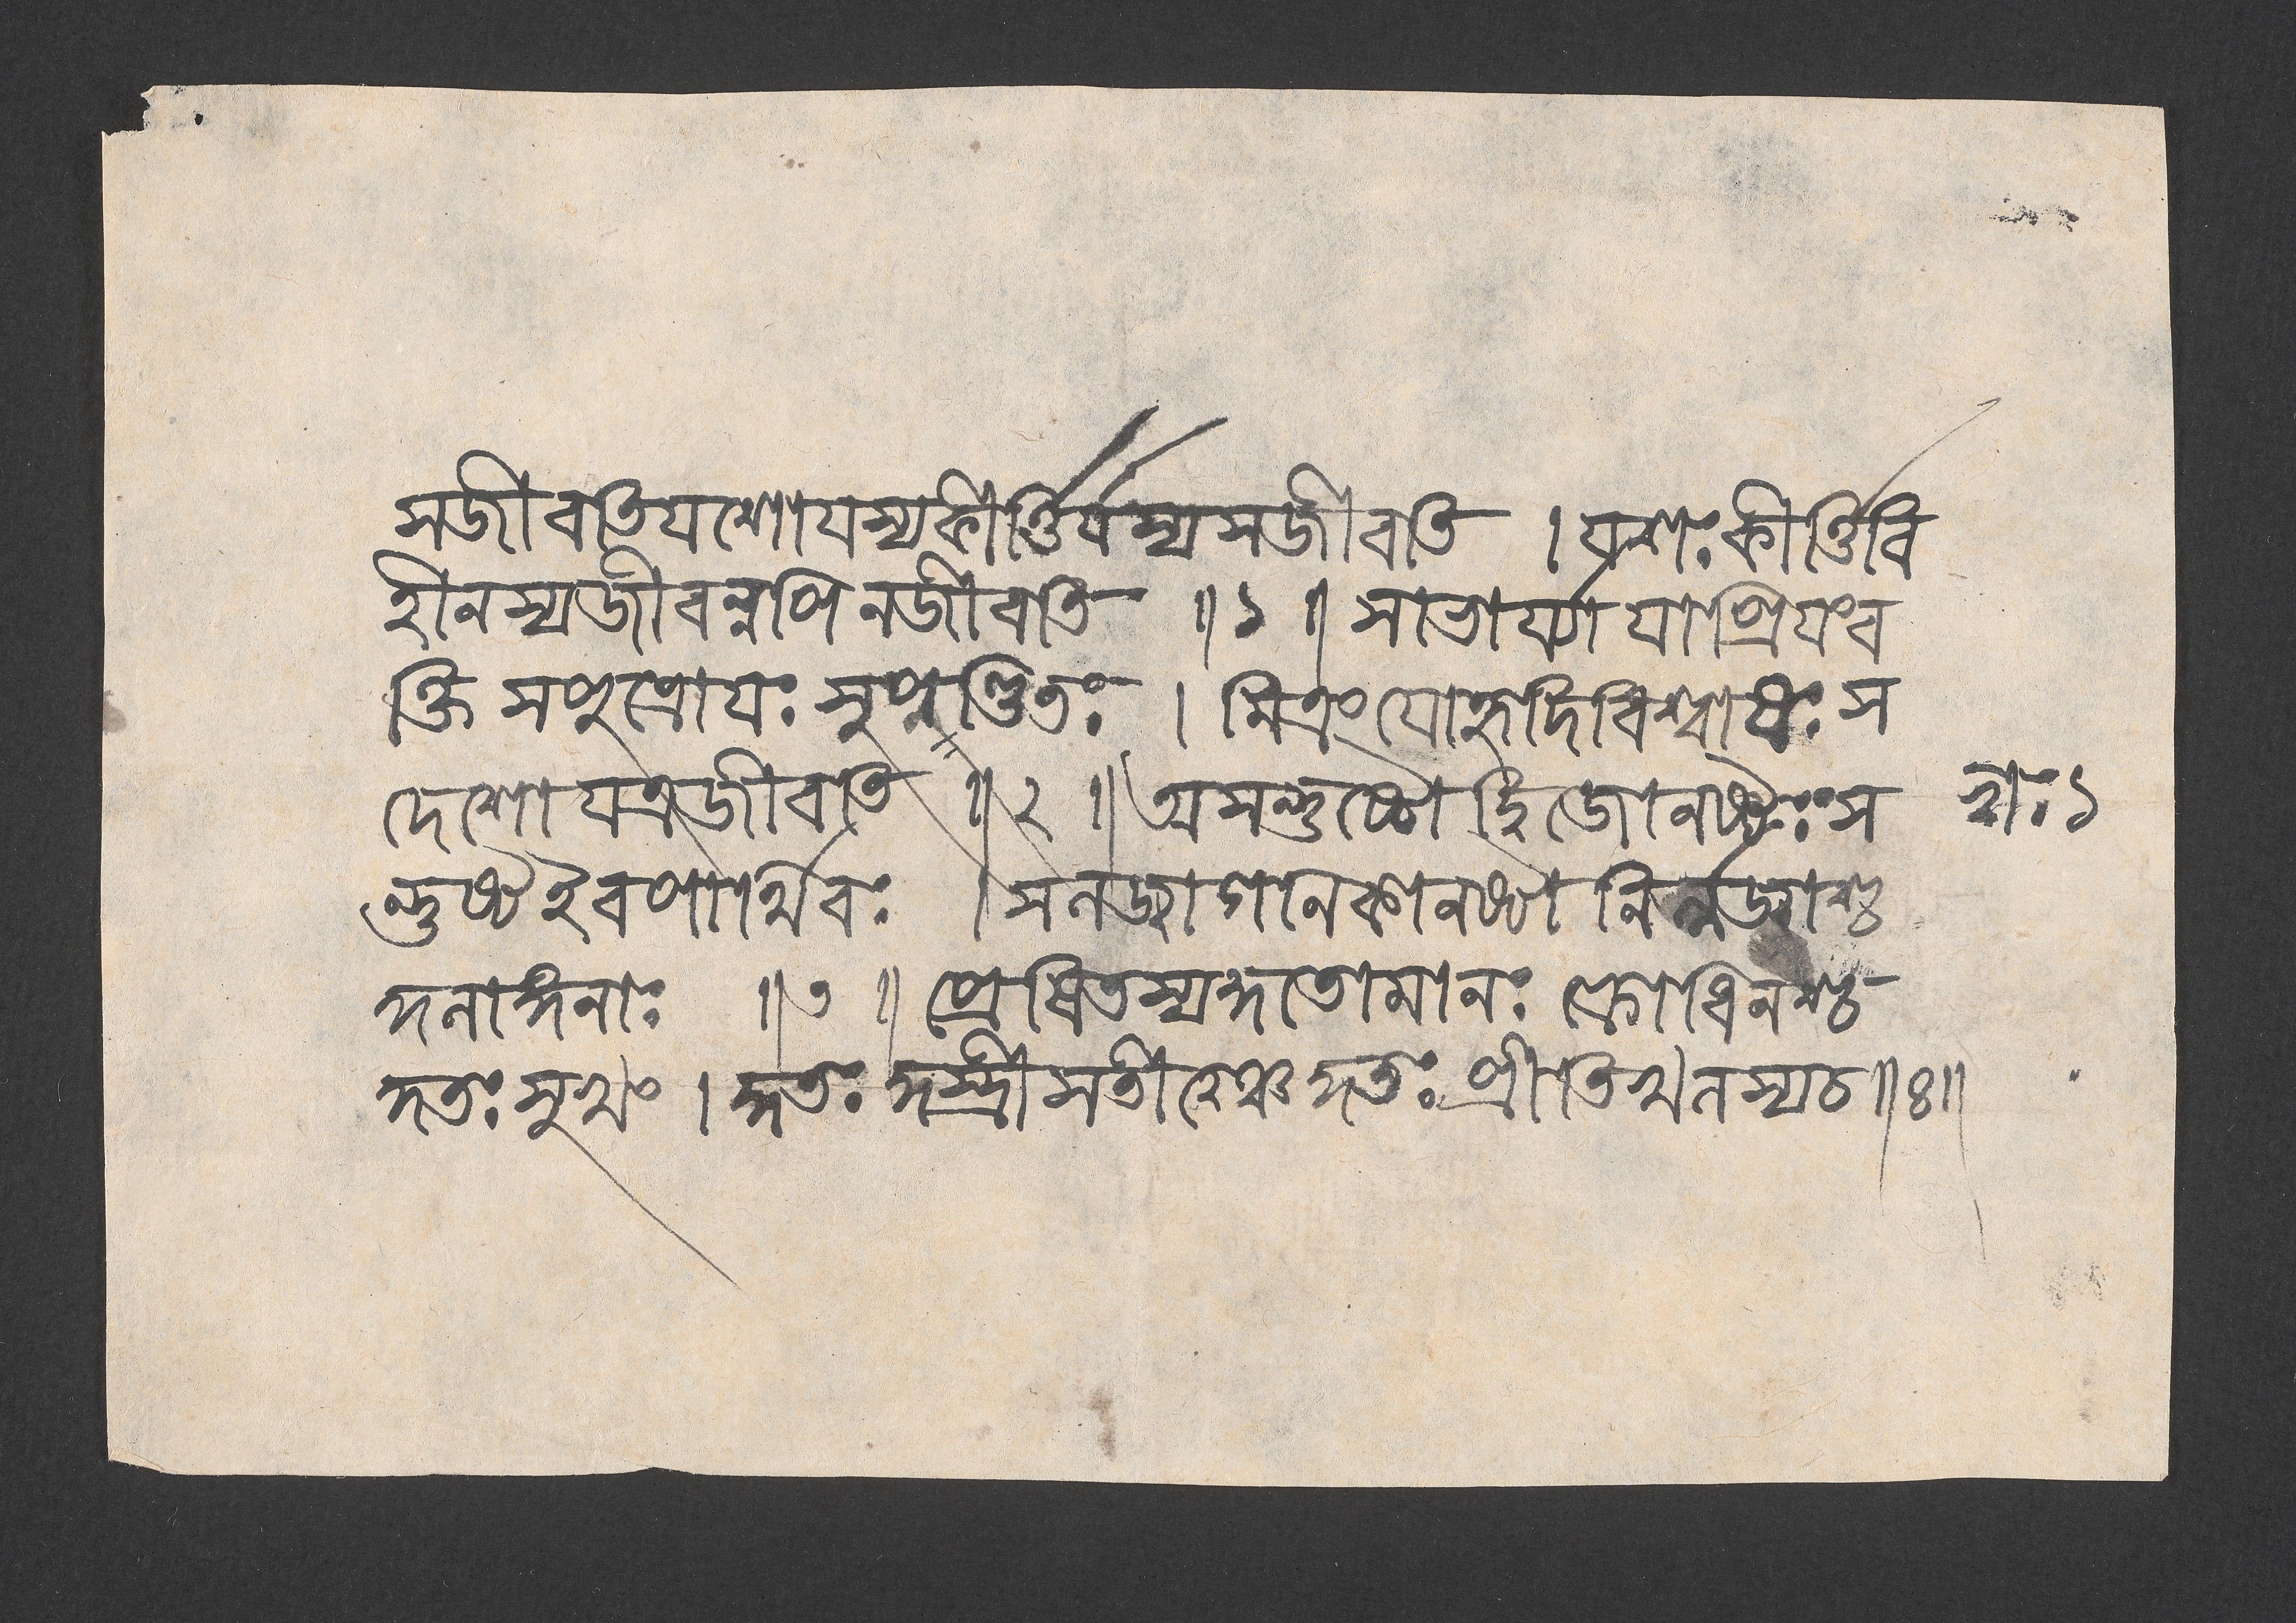 সজীবতিযশোযস্যকীর্ত্তির্যস্যসজীবতি । যশঃকীর্ত্তিবি
হীনস্যজীবন্নপিনজীবতি ॥ ১ ॥ সাভার্য্যাযাপ্রিযংব
ক্তি সপুত্রোযঃ সুপণ্ডিতঃ । মিত্রং যোহৃদিবিশ্বাসঃ স
দেশোযত্রজীবতি ॥ ২ ॥ অসন্তুষ্টোদ্বিজোনষ্টঃ স
ন্তুষ্টইবপার্থিবঃ । সলজ্জাগনিকানষ্টা নির্ল্লজ্জাশ্চ
হলাঙ্গনাঃ ॥ ৩ ॥ প্রেষিতস্যহতোমানঃ ক্রোধিনশ্চ
হতঃসুখং । হতঃ হস্ত্রীসতীত্বঞ্চহতঃ প্রীতিখলস্যচ ॥ ৪ ॥
রাঃ ১